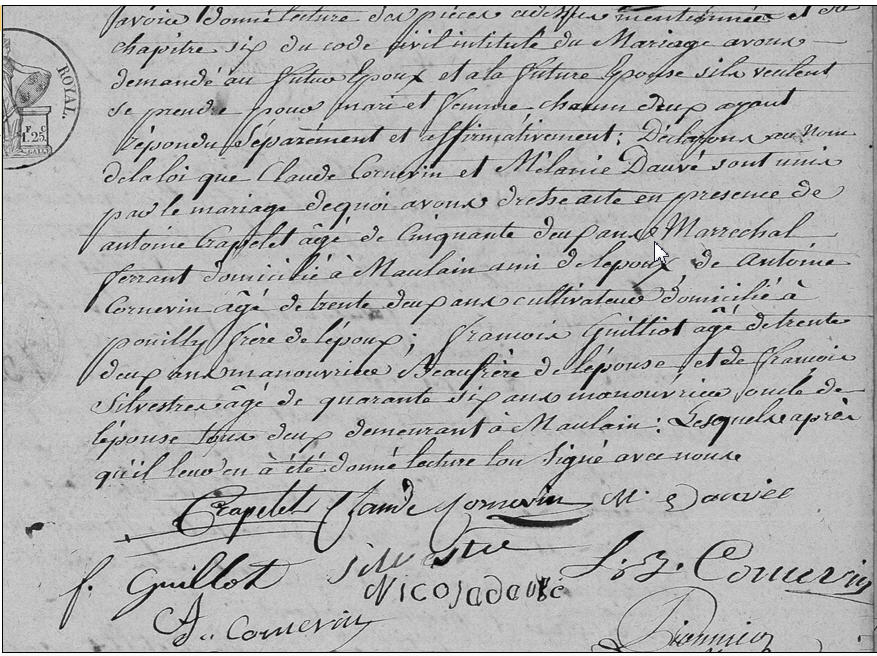 ROYAL.
1.25
avoir donné lecture des pièces mentionnées et du
chapitre six du code civil intitulé du Mariage avons
demandé au futur Epoux et a la future Epouse sils veulent
se prendre pour mari et femme chacun deux ayant
répondu séparément et affirmativement ; Déclarons au Nom
de la loi que Claude Cornevin et Mélanie Dauvé sont unis
par le mariage de quoi avons dressé acte en presence de
antoine Crapelet âgé de Cinquante deux ans Marrechal
ferrant domicilié à Maulain ami de lépoux, de Antoine
Cornevin âgé de trente deux ans cultivateur domicilié à
pouilly frère de l'époux ; francois Guilliot âgé de trente
deux ans manouvrier Beaufrère de l'épouse et de francois
Silvestre âgé de quarante six ans manouvrier oncle de
lépouse tous deux demeurant à Maulain : Lesquels après
qu'il leur en à été donné lecture lon Signé avec nous
Crapelet Claude Cornevin M. Dauvée
f. Guillot Silvestre
Nicola dauvé Cornevin
A. Cornevin